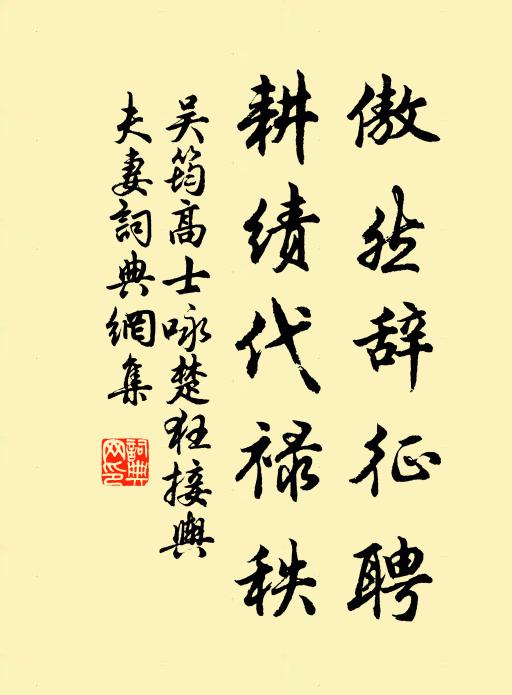 傲然辞征聘
耕绩代禄秩
吴筠高士咏楚狂接舆
夫妻詞典網集
詞典網印